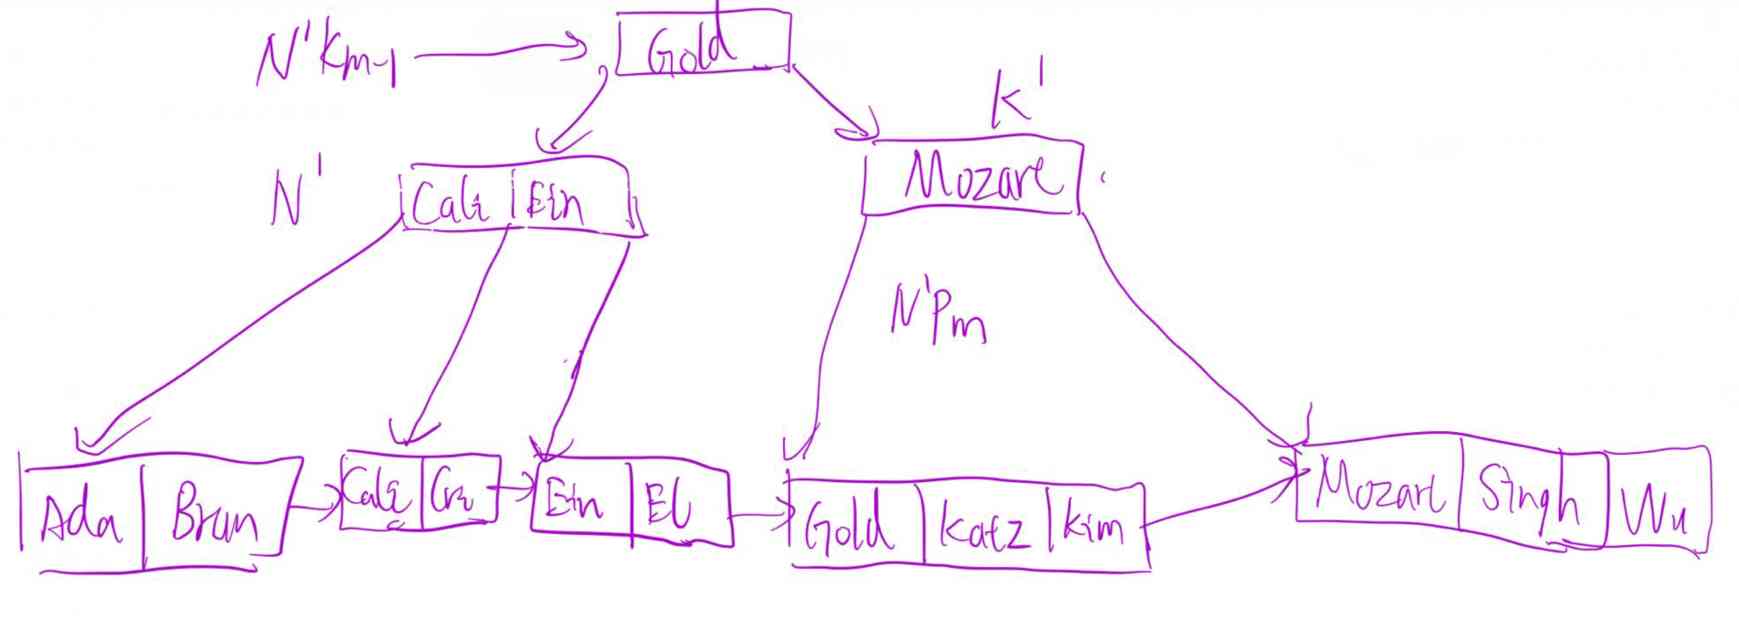 N'Km-1
Gold
K'
N'
Cali
Ein
Mozart
N'Pm
Ada
Bran
Cali
Ein
El
Gold
Katz
Kim
Mozart
Singh
Wu